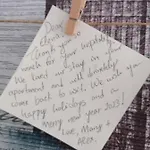 Dear
Thank you so
much for your hospitality.
We loved our stay in
apartment and will definitely
come back to visit. We wish you
happy holidays and a
Merry new year 2023!
Love, Mary &